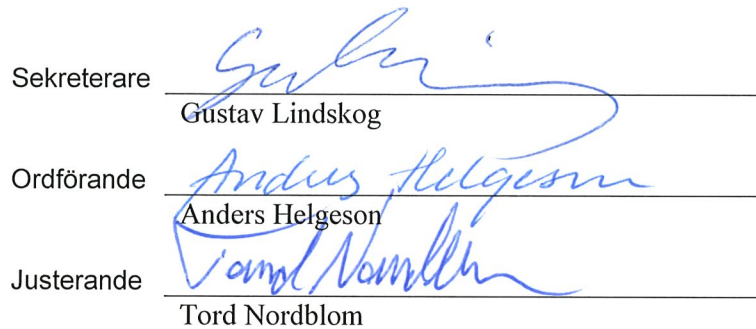 Sekreterare
Gustav Lindskog
Ordförande Anders Helgeson
Anders Helgeson
Justerande
Tord Nordblom